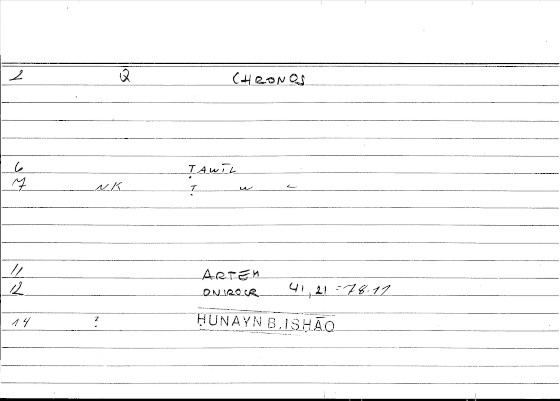 2 Q CHRONOS
6 ṬAWĪL
7 N.K Ṭ w L
11 ARTEM
12 ONIROCR 41,21 = 78.11
14 ? ḤUNAYN B. ISḤĀQ